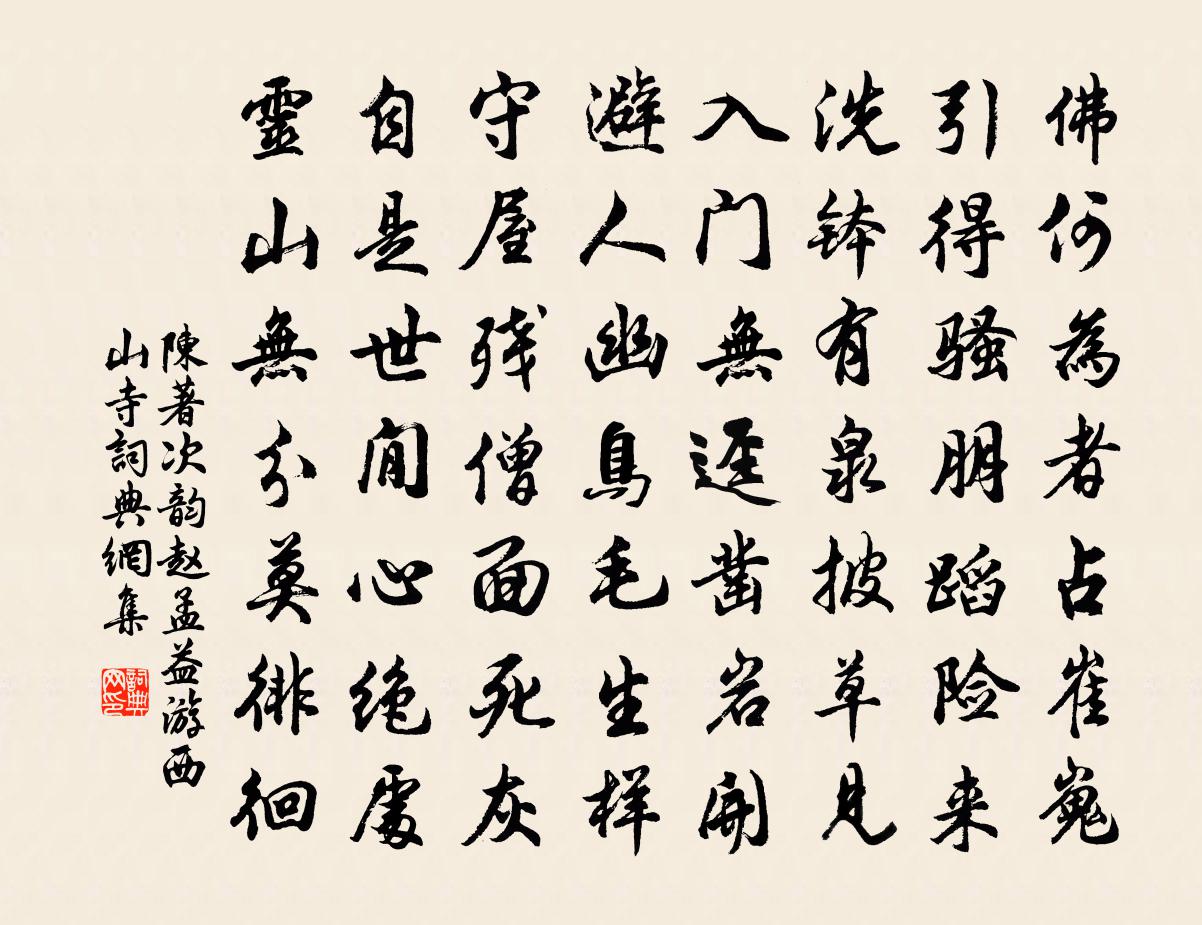 佛何為者占崔嵬
引得骚朋蹈险来
洗钵有泉披草見
入门無迳凿岩開
避人幽鳥毛生样
守屋残僧面死灰
自是世間心绝處
靈山無分莫徘徊
陳著次韵赵孟益游西
山寺詞典網集